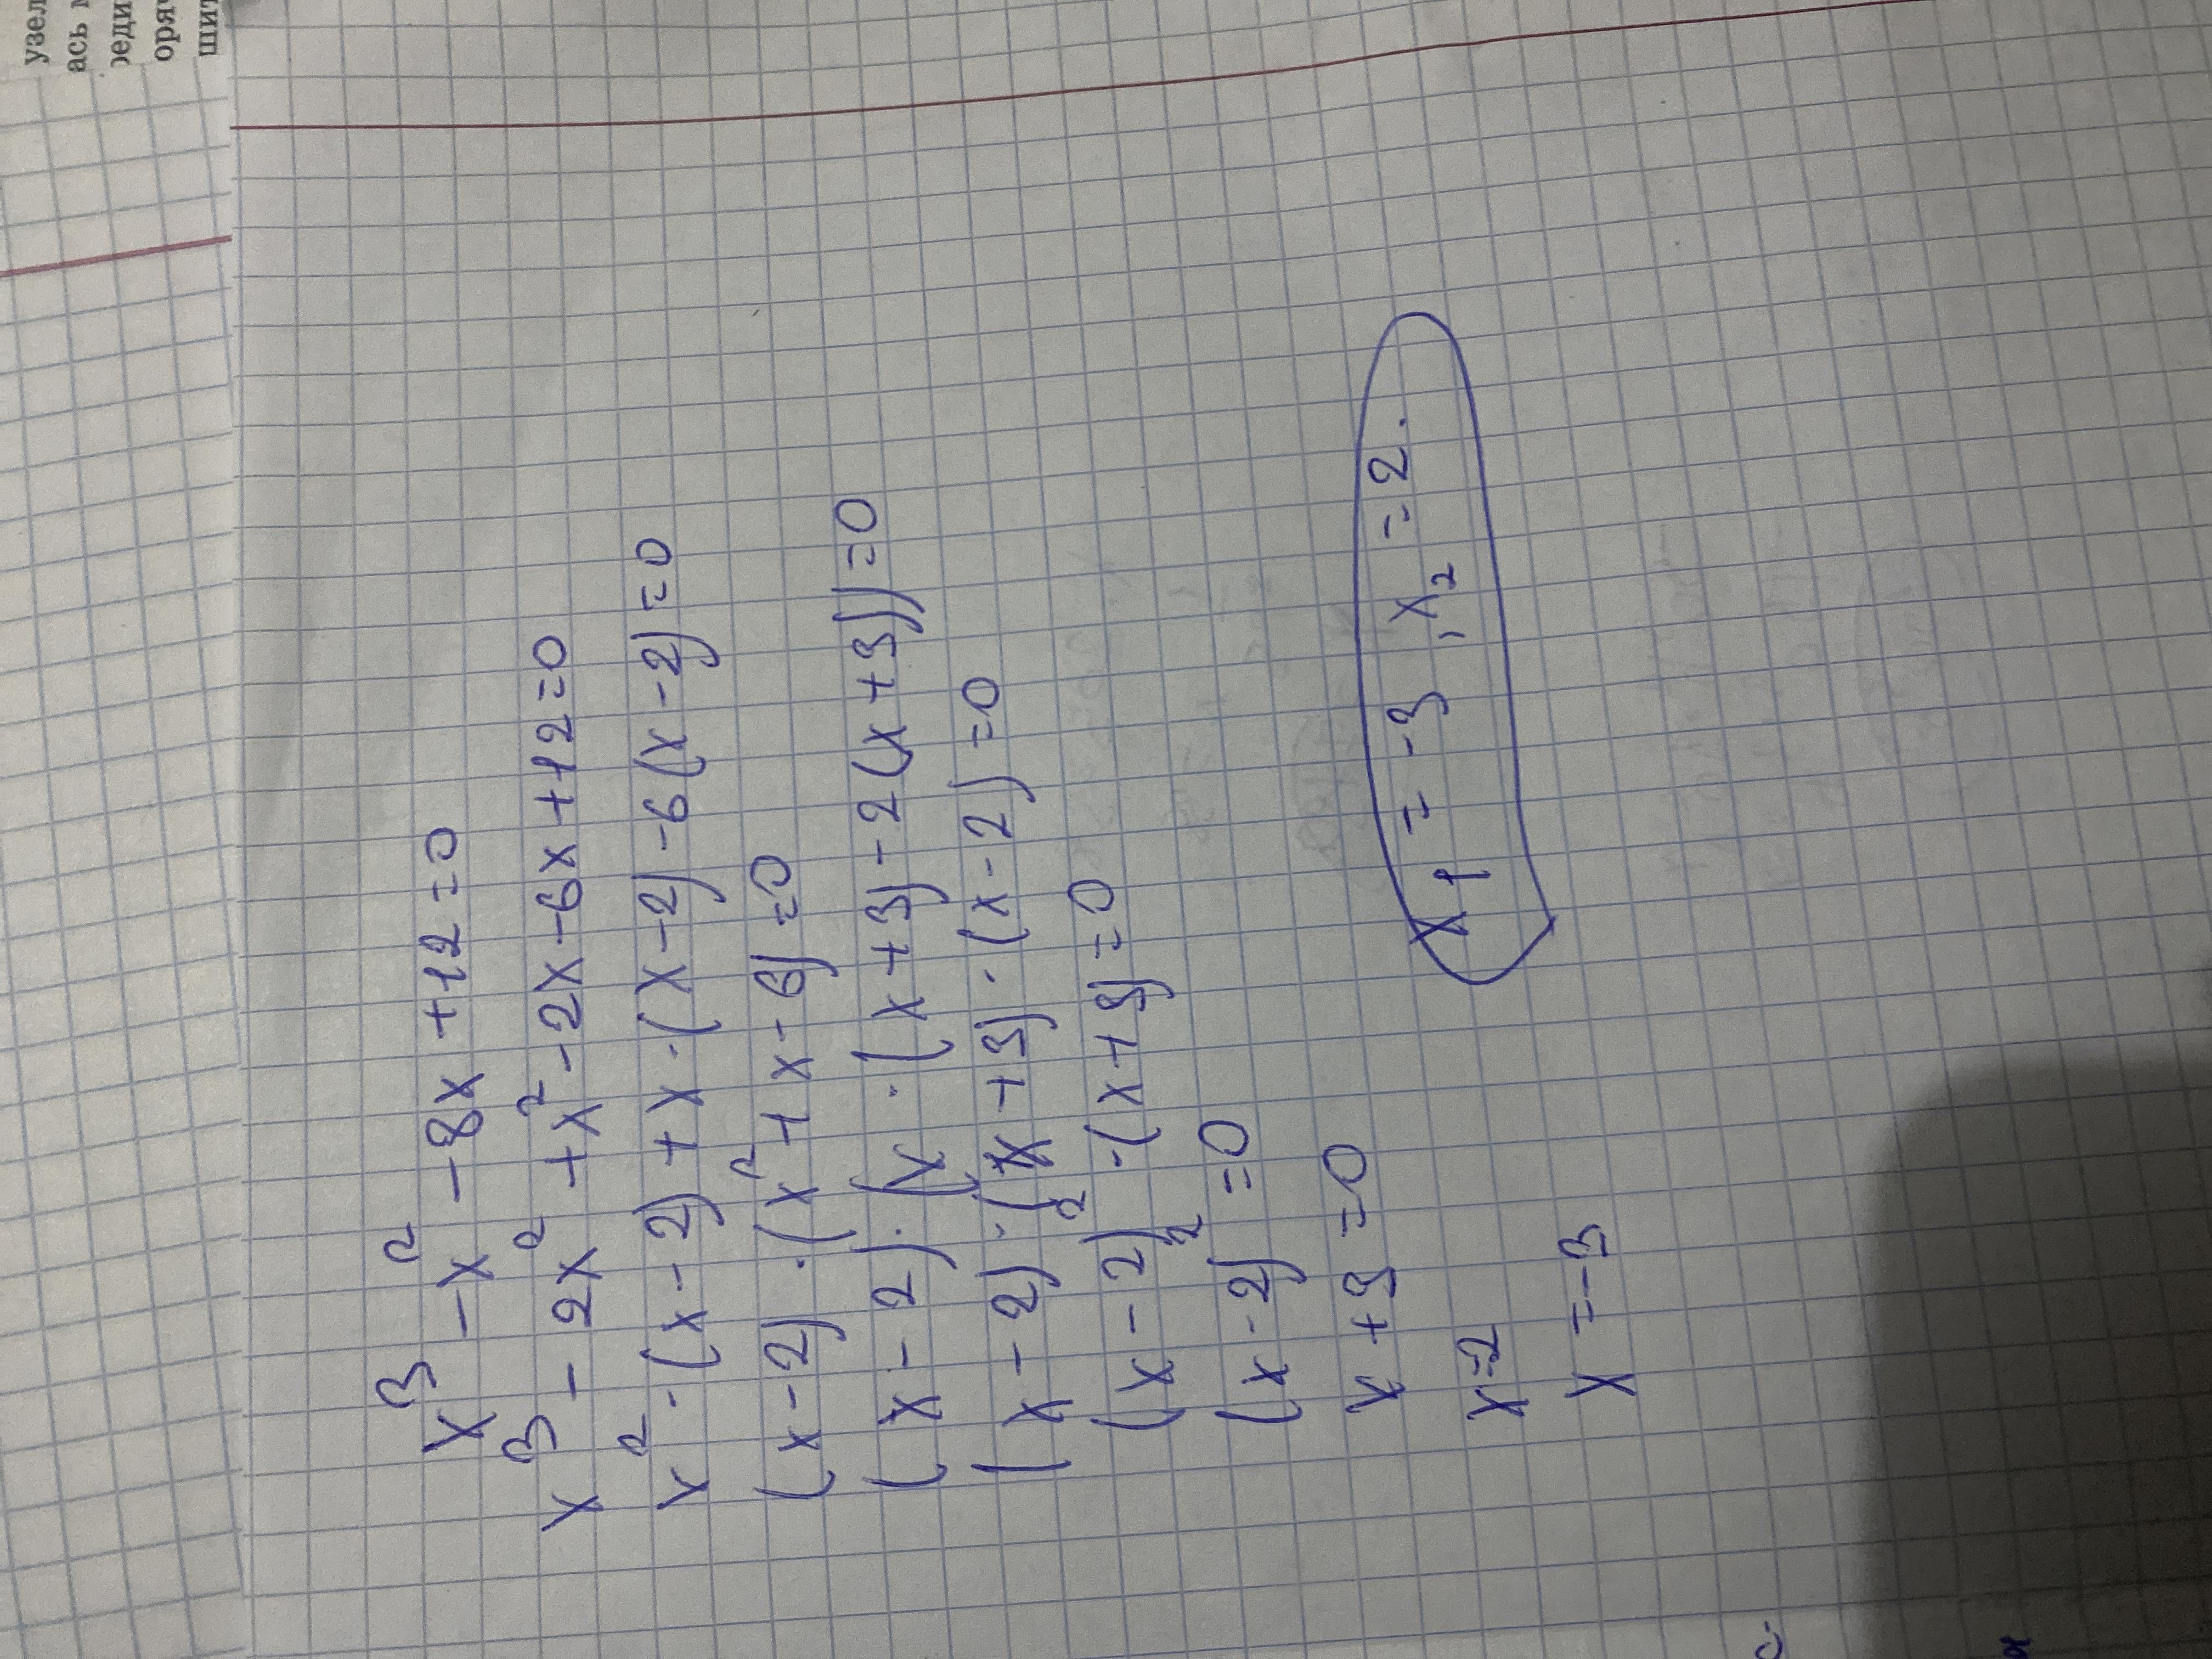 узел
ась
реди
оря
шит
x³ - x² - 8x + 12 = 0
x³ - 2x² + x² - 2x - 6x + 12 = 0
x² · (x - 2) + x · (x - 2) - 6(x - 2) = 0
(x - 2) · (x² + x - 6) = 0
(x - 2) · (x · (x + 3) - 2(x + 3)) = 0
(x - 2) · (x + 3) · (x - 2) = 0
(x - 2)² · (x + 3) = 0
(x - 2)² = 0
x + 3 = 0
x = 2
x = -3
x₁ = -3, x₂ = 2.